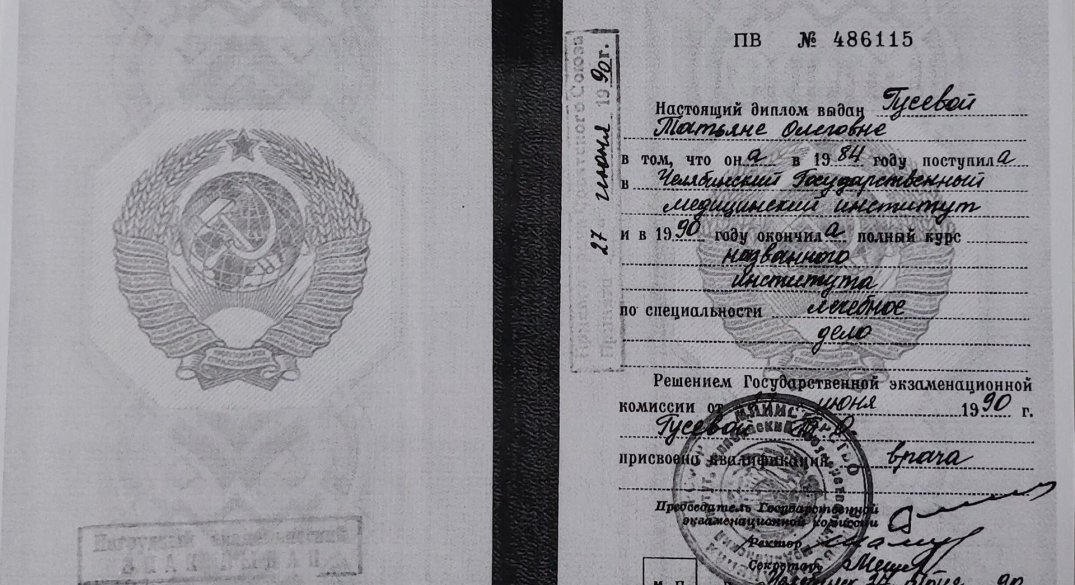 ПВ № 486115
27 июня 1990г.
Настоящий диплом выдан Гусевой
Татьяне Олеговне
в том, что она в 1984 году поступила
в Челябинский Государственный
медицинский институт
и в 1990 году окончила полный курс
названного
института
по специальности лечебное
дело
Решением Государственной экзаменационной
комиссии от июня 1990 г.
Гусевой Т.О.
присвоена квалификация врача
Председатель Государственной
экзаменационной комиссии
Ректор
Секретарь
М. П.
МИНИСТЕРСТВО